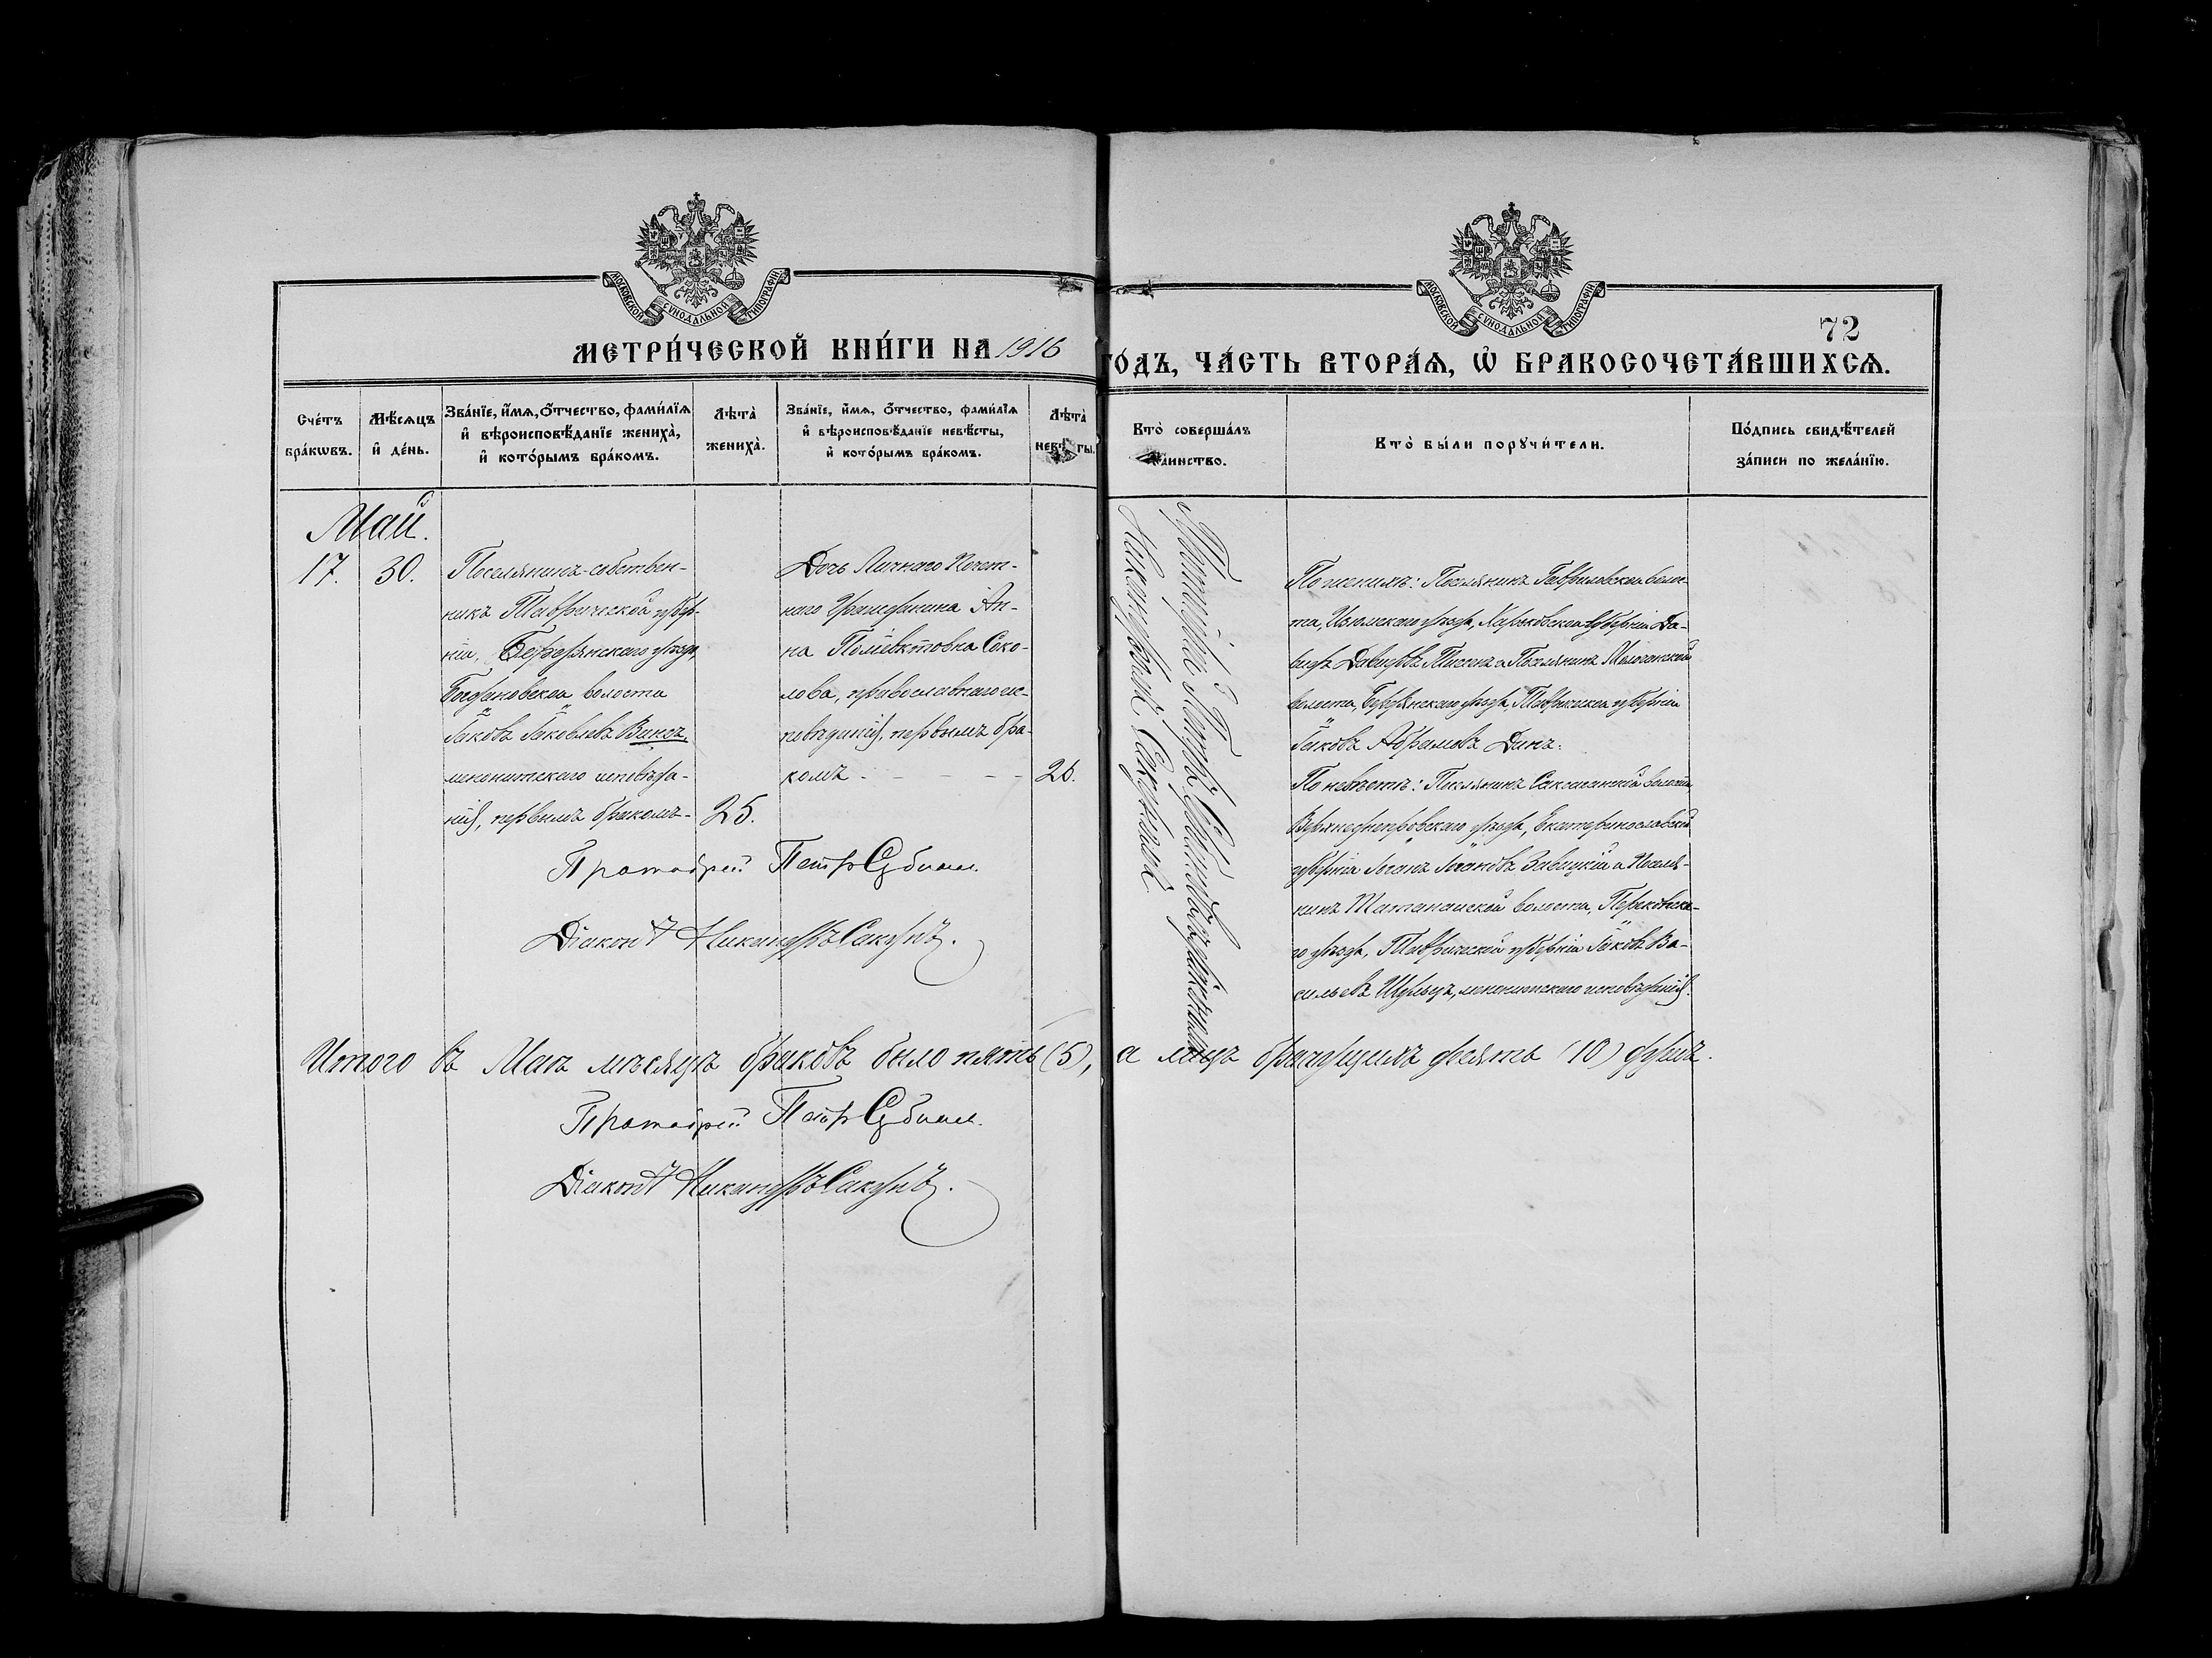 МОСКОВСКОЙ СѴНОДАЛЬНОЙ ТИПОГРАФІИ
МОСКОВСКОЙ СѴНОДАЛЬНОЙ ТИПОГРАФІИ
72
МЕТРИ́ЧЕСКОЙ КНИ́ГИ НА 1916
ГО́ДЪ, ЧА́СТЬ ВТОРА́Ѧ, Ѡ҆ БРАКОСОЧЕТА́ВШИХСѦ.
Сче́тъ бра́кѡвъ.
Мѣ́сѧцъ и҆ де́нь.
Зва́нїе, и҆́мѧ, ѻ҆́тчество, фами́лїѧ и҆ вѣроисповѣ́данїе жениха̀, и҆ кото́рымъ бра́комъ.
Лѣта̀ жениха̀.
Зва́нїе, и҆́мѧ, ѻ҆́тчество, фами́лїѧ и҆ вѣроисповѣ́данїе невѣ́сты, и҆ кото́рымъ бра́комъ.
Лѣта̀ невѣ́сты.
Кто̀ соверша́лъ таинство.
Кто̀ бы́ли порꙋчи́тели.
По́дпись свидѣ́телей за́писи по жела́нїю.
Май.
17.
30.
Поселянинъ-собствен-
никъ Таврической губер-
ніи, Бердянскаго уѣзда,
Богдановской волости
Іаковъ Іаковлевъ Винсъ,
менонитскаго исповѣда-
нія, первымъ бракомъ-
25.
Дочь Личнаго Почет-
наго Гражданина Ан-
на Поліевктовна Соко-
лова, православнаго ис-
повѣданія, первымъ бра-
комъ
26.
Протоіерей Петръ
Діаконъ Никандръ Сакунъ.
Протоіерей Петръ
Никандромъ Сакуномъ
По женихѣ: Поселянинъ Гавриловской волос-
ти, Изюмскаго уѣзда, Харьковской губерніи Да-
видъ Давидовъ Тиссенъ и Поселянинъ Молочанской
волости, Бердянскаго уѣзда, Таврической губерніи
Іаковъ Абрамовъ Дикъ.
По невѣстѣ: Поселянинъ волости
Верхнеднепровскаго уѣзда, Екатеринославской
губерніи Іоганъ Іогановъ Завацкій и Поселя-
нинъ волости, Перекопска-
го уѣзда, Таврической губерніи Іаковъ Ва-
сильевъ Шульцъ, менонитскаго исповѣданія.
Итого въ Маѣ мѣсяцѣ браковъ было пять (5), а лицъ брачущихъ десять (10) душъ.
Протоіерей Петръ
Діаконъ Никандръ Сакунъ.